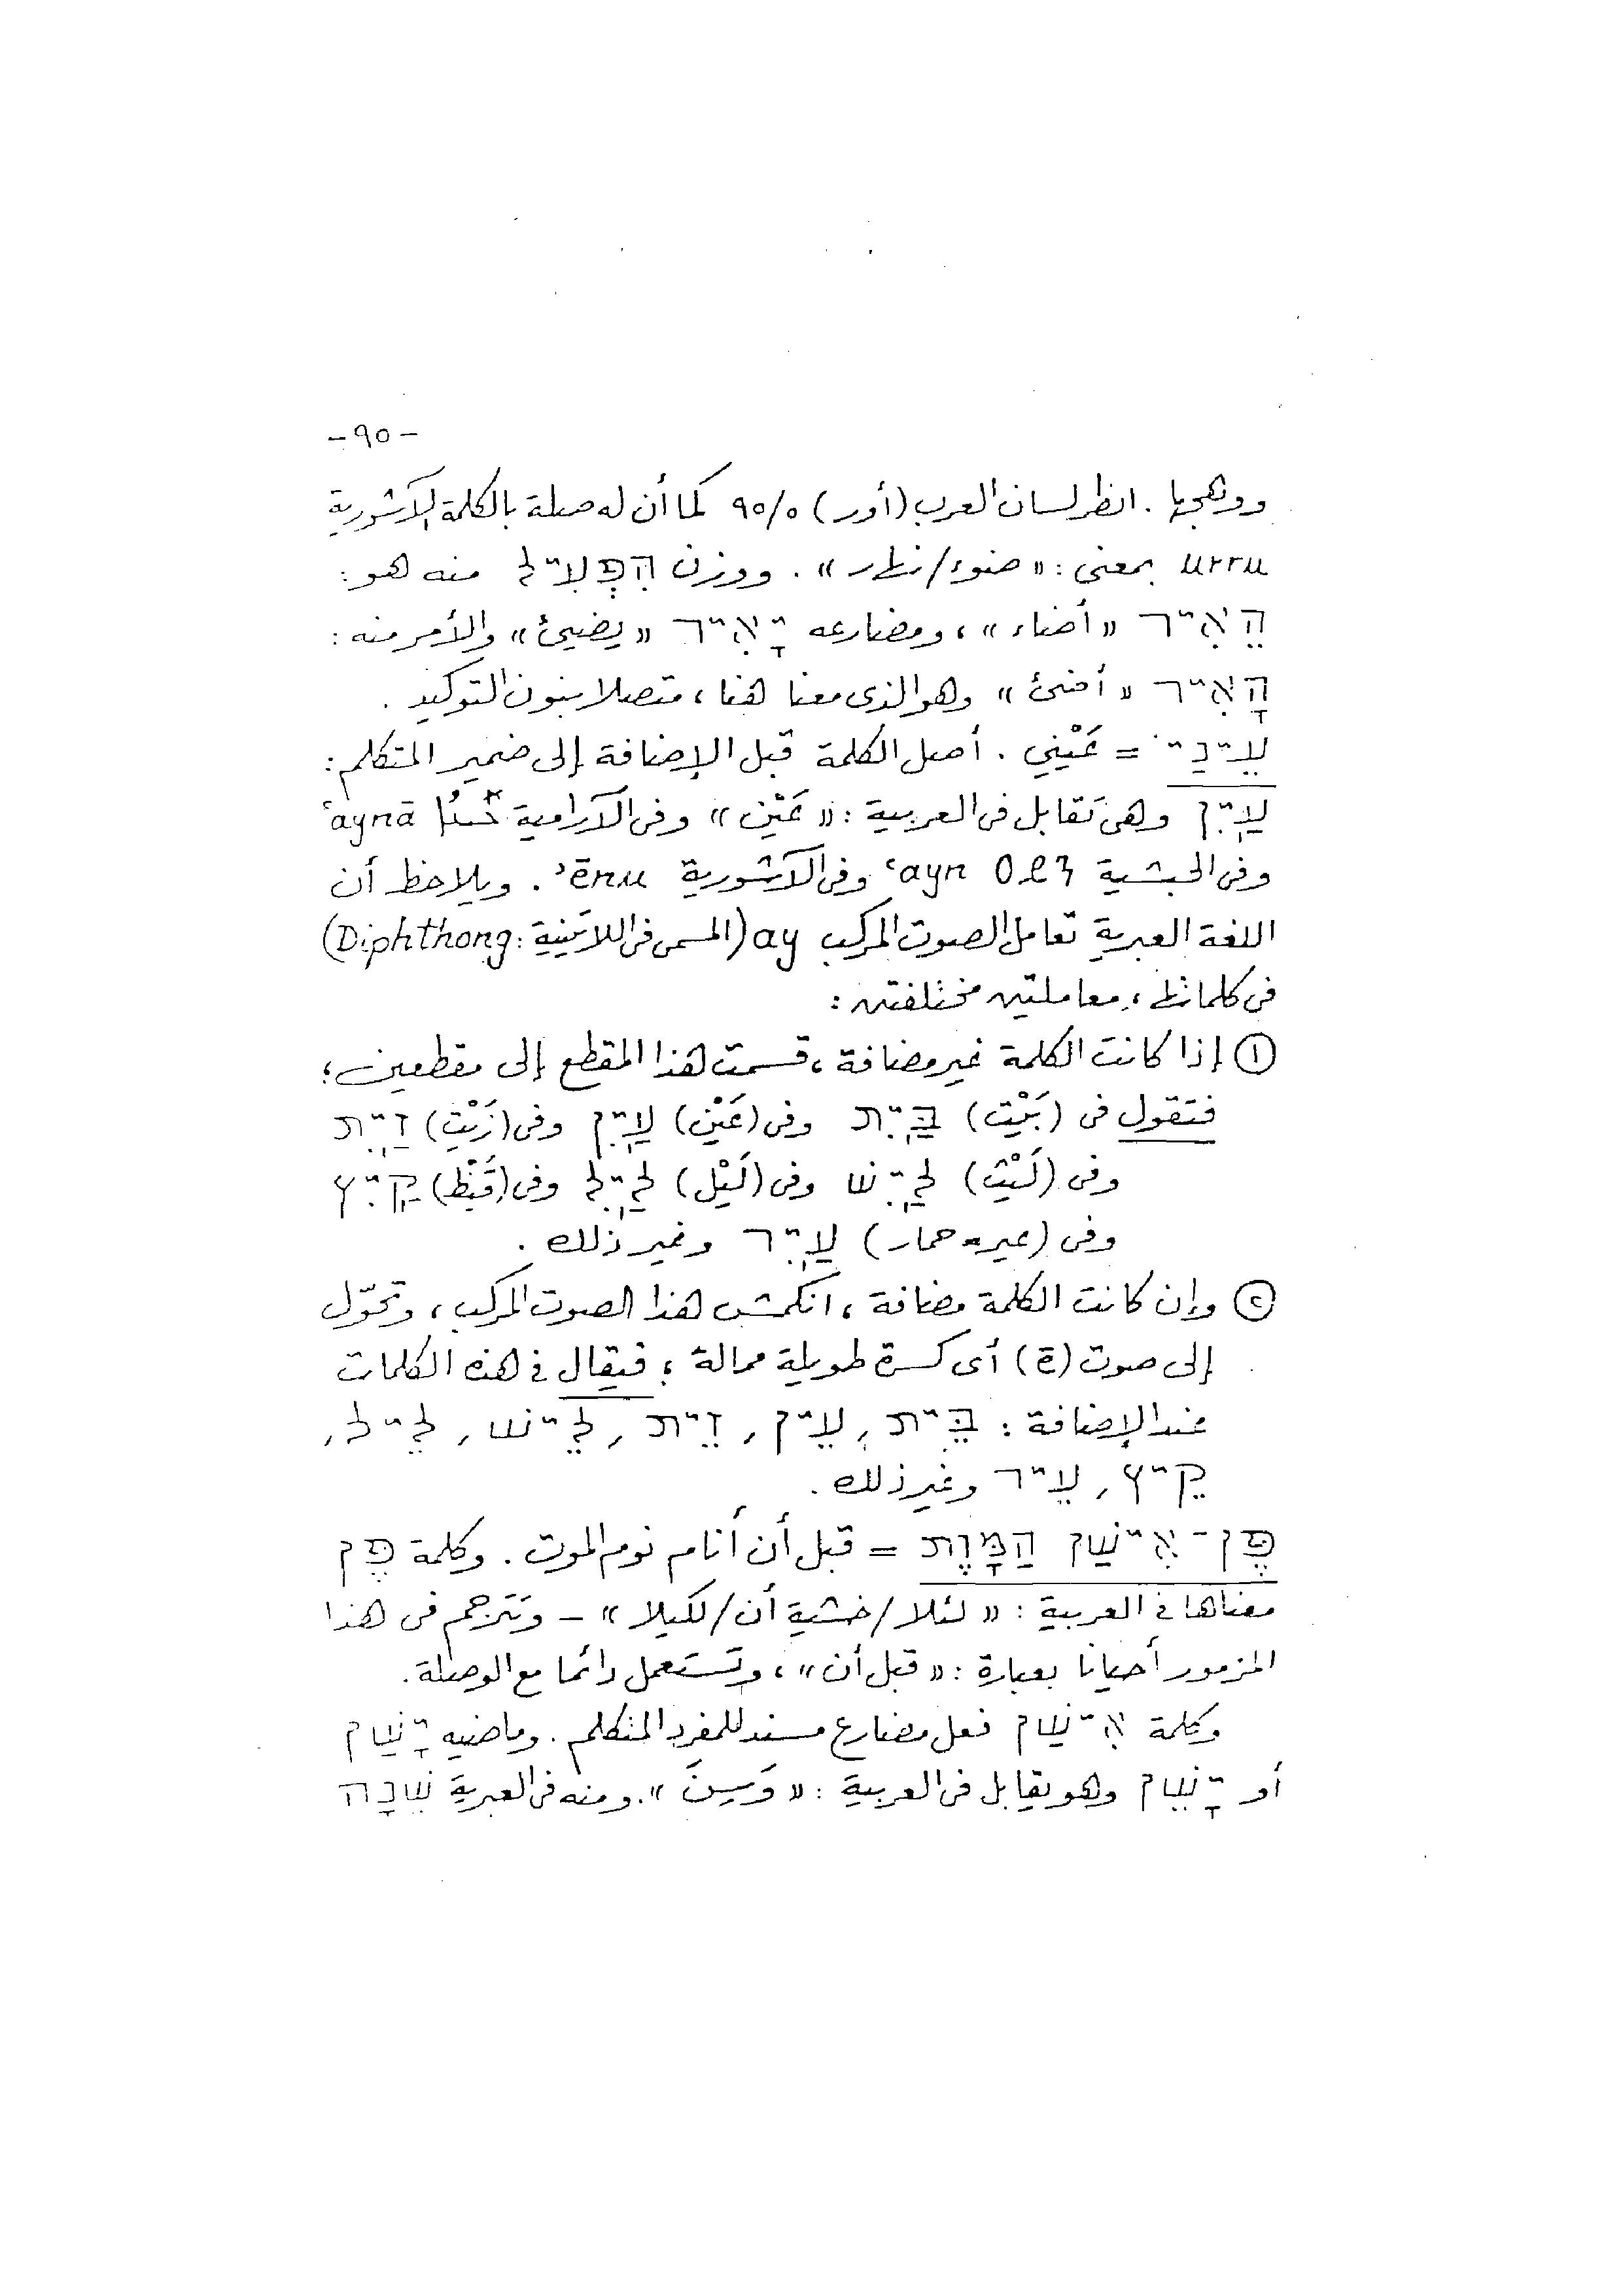 -٩٥-
ووهجها . انظر لسان العرب (أور) ٩٥/٥ كما أن له صلة بالكلمة الآشورية
urru بمعنى : «ضوء/نهار» . ووزن הִפְעִיל منه هو :
הֵאִיר «أضاء» ، ومضارعه יָאִיר «يضيئ» والأمر منه :
הָאִיר «أضئ» وهو الذى معنا هنا ، متصلا بنون التوكيد .
עֵינַי = عَيْنِي . أصل الكلمة قبل الإضافة إلى ضمير المتكلم :
עַיִן وهى تقابل فى العربية : «عَيْن» وفى الآرامية ܥܰܝܢܳܐ ʿaynā
وفى الحبشية ዐይን ʿayn وفى الآشورية ʾēnu . ويلاحظ أن
اللغة العبرية تعامل الصوت المركب ay (المسمى فى اللاتينية : Diphthong)
فى كلماتها ، معاملتين مختلفتين :
① إذا كانت الكلمة غير مضافة ، قسمت هذا المقطع إلى مقطعين ؛
فتقول فى (بَيْت) בַּיִת وفى (عَيْن) עַיִן وفى (زَيْت) זַיִת
وفى (لَيْث) לַיִשׁ وفى (لَيْل) לַיִל وفى (قَيْظ) קַיִץ
وفى (عير = حمار) עַיִר وغير ذلك .
② وإن كانت الكلمة مضافة ، انكمش هذا الصوت المركب ، وتحوّل
إلى صوت (ē) أى كسرة طويلة ممالة ؛ فيقال فى هذه الكلمات
عند الإضافة : בֵּית , עֵין , זֵית , לֵישׁ , לֵיל ,
קֵיץ , עֵיר وغير ذلك .
פֶּן־אִישַׁן הַמָּוֶת = قبل أن أنام نوم الموت . وكلمة פֶּן
معناها فى العربية : «لئلا/خشية أن/لكيلا» – وتترجم فى هذا
المزمور أحيانا بعبارة : «قبل أن» ، وتستعمل دائما مع الوصلة .
وكلمة אִישַׁן فعل مضارع مسند للمفرد المتكلم . وماضيه יָשַׁן
أو יָשֵׁן وهو يقابل فى العربية : «وَسِنَ» . ومنه فى العبرية שֵׁנָה